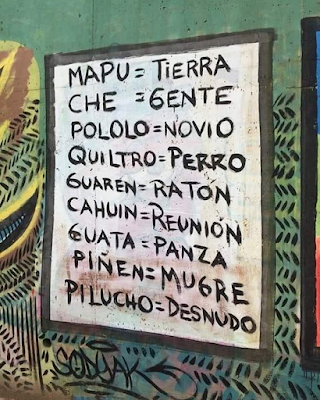 MAPU = TIERRA
CHE = GENTE
POLOLO = NOVIO
QUILTRO = PERRO
GUAREN = RATÓN
CAHUIN = REUNIÓN
GUATA = PANZA
PIÑEN = MUGRE
PILUCHO = DESNUDO